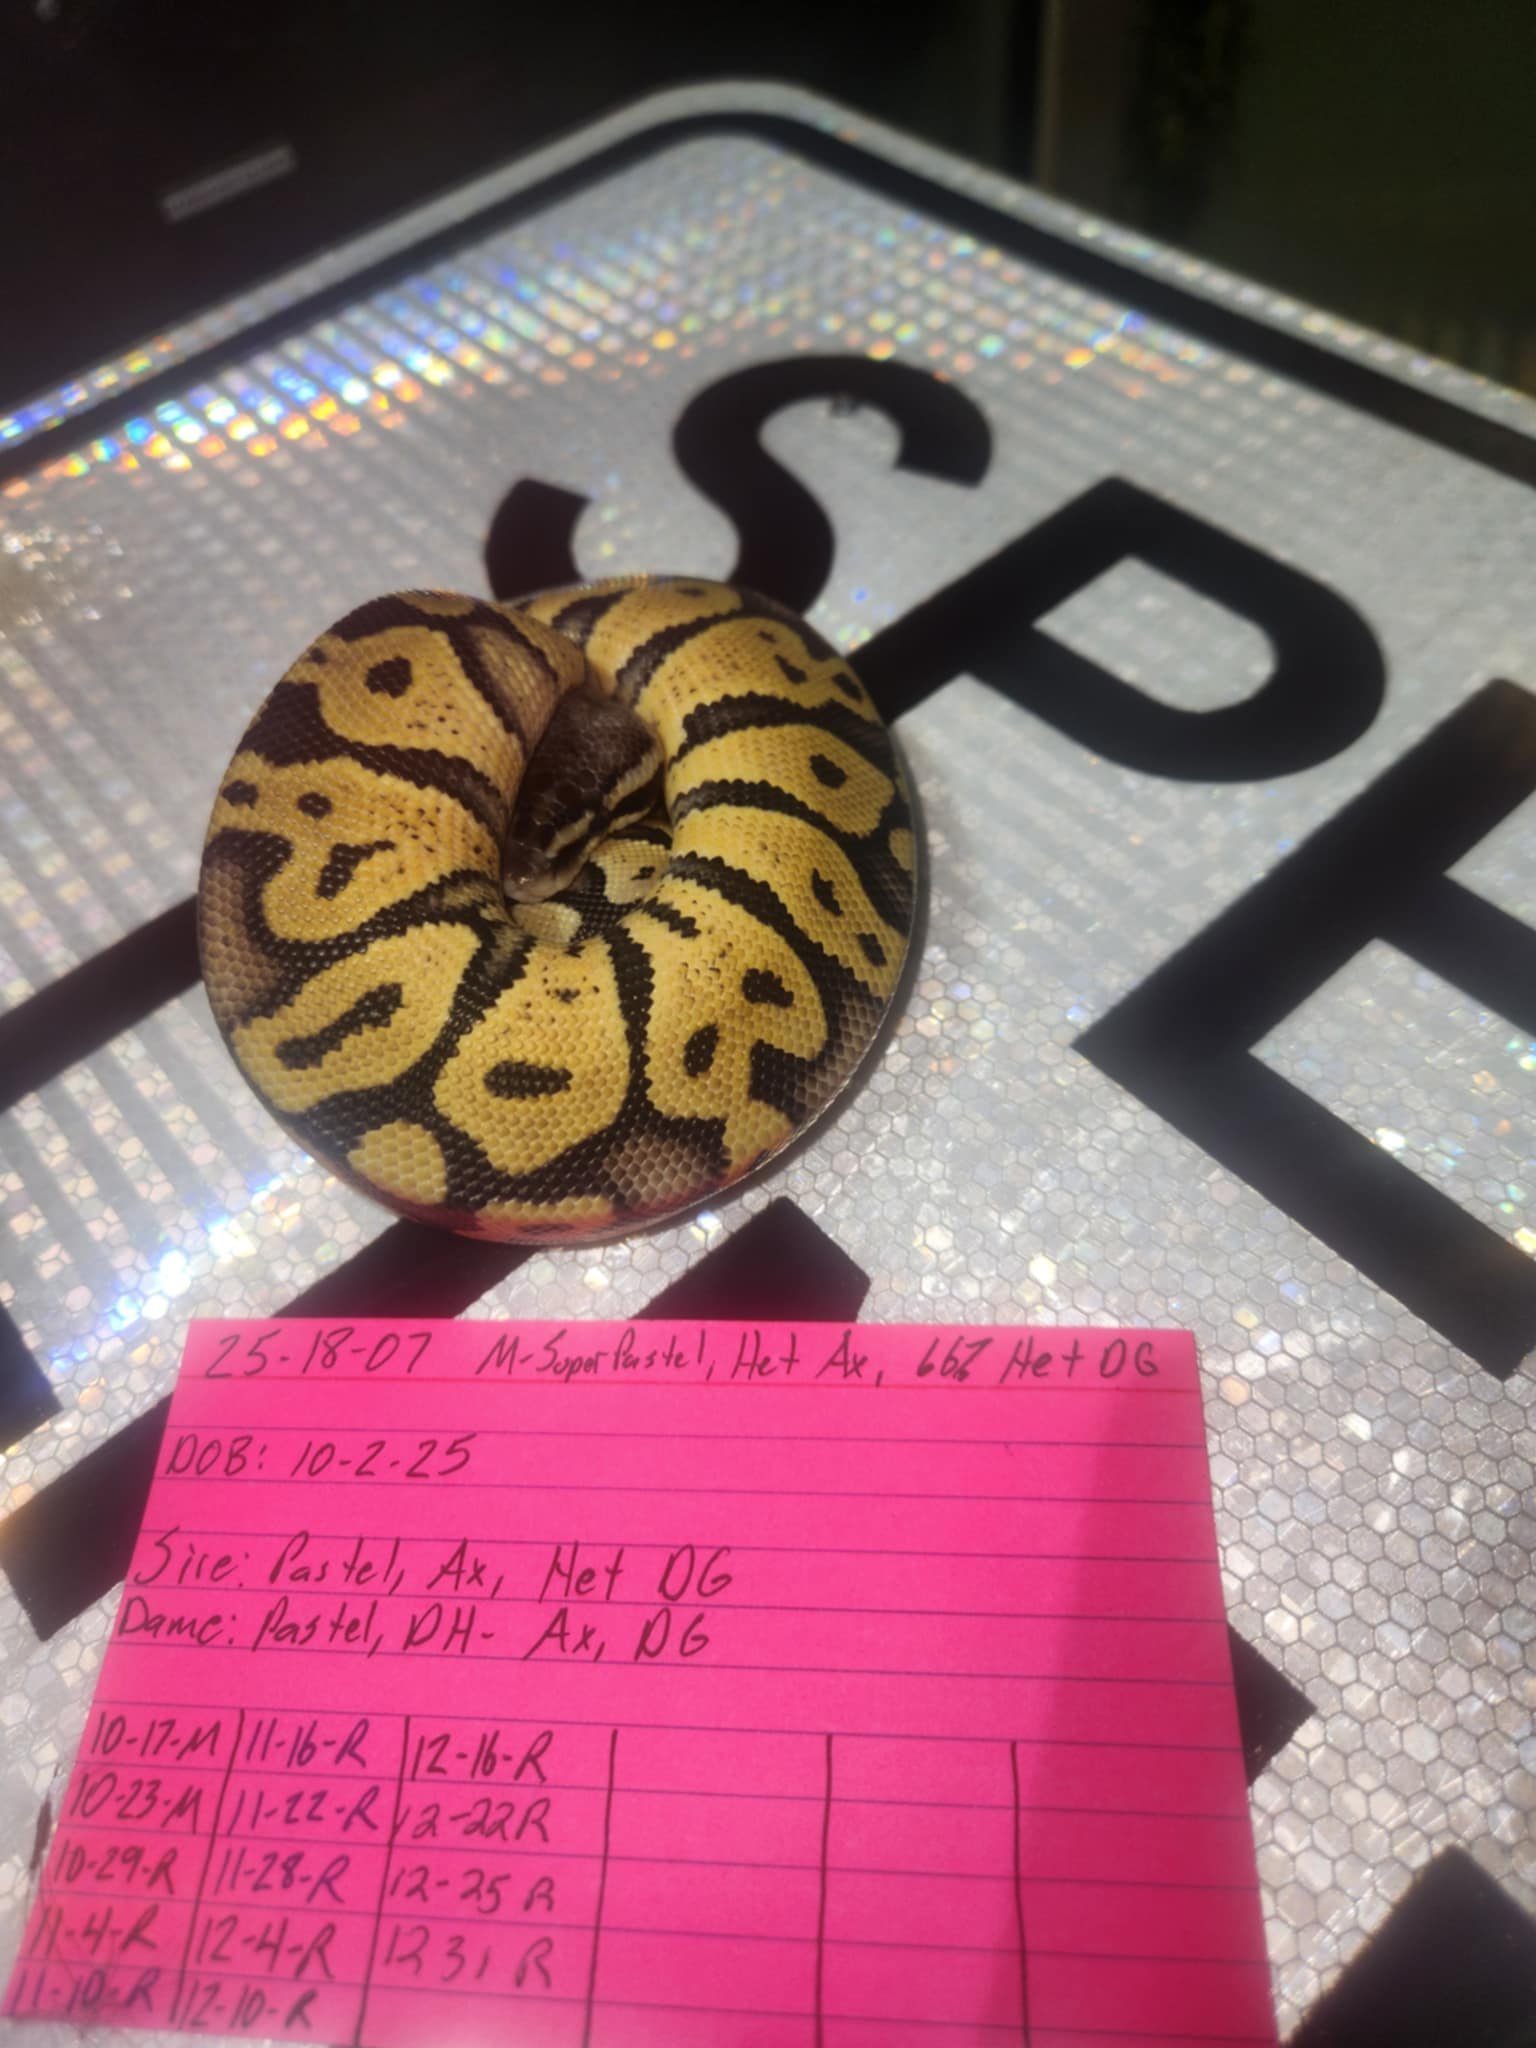 SPE
25-18-07 M-Super Pastel, Het Ax, 66% Het DG
DOB: 10-2-25
Sire: Pastel, Ax, Het DG
Dame: Pastel, DH- Ax, DG
10-17-M 11-16-R 12-16-R
10-23-M 11-22-R 12-22R
10-29-R 11-28-R 12-25 R
11-4-R 12-4-R 12 31 R
11-10-R 12-10-R